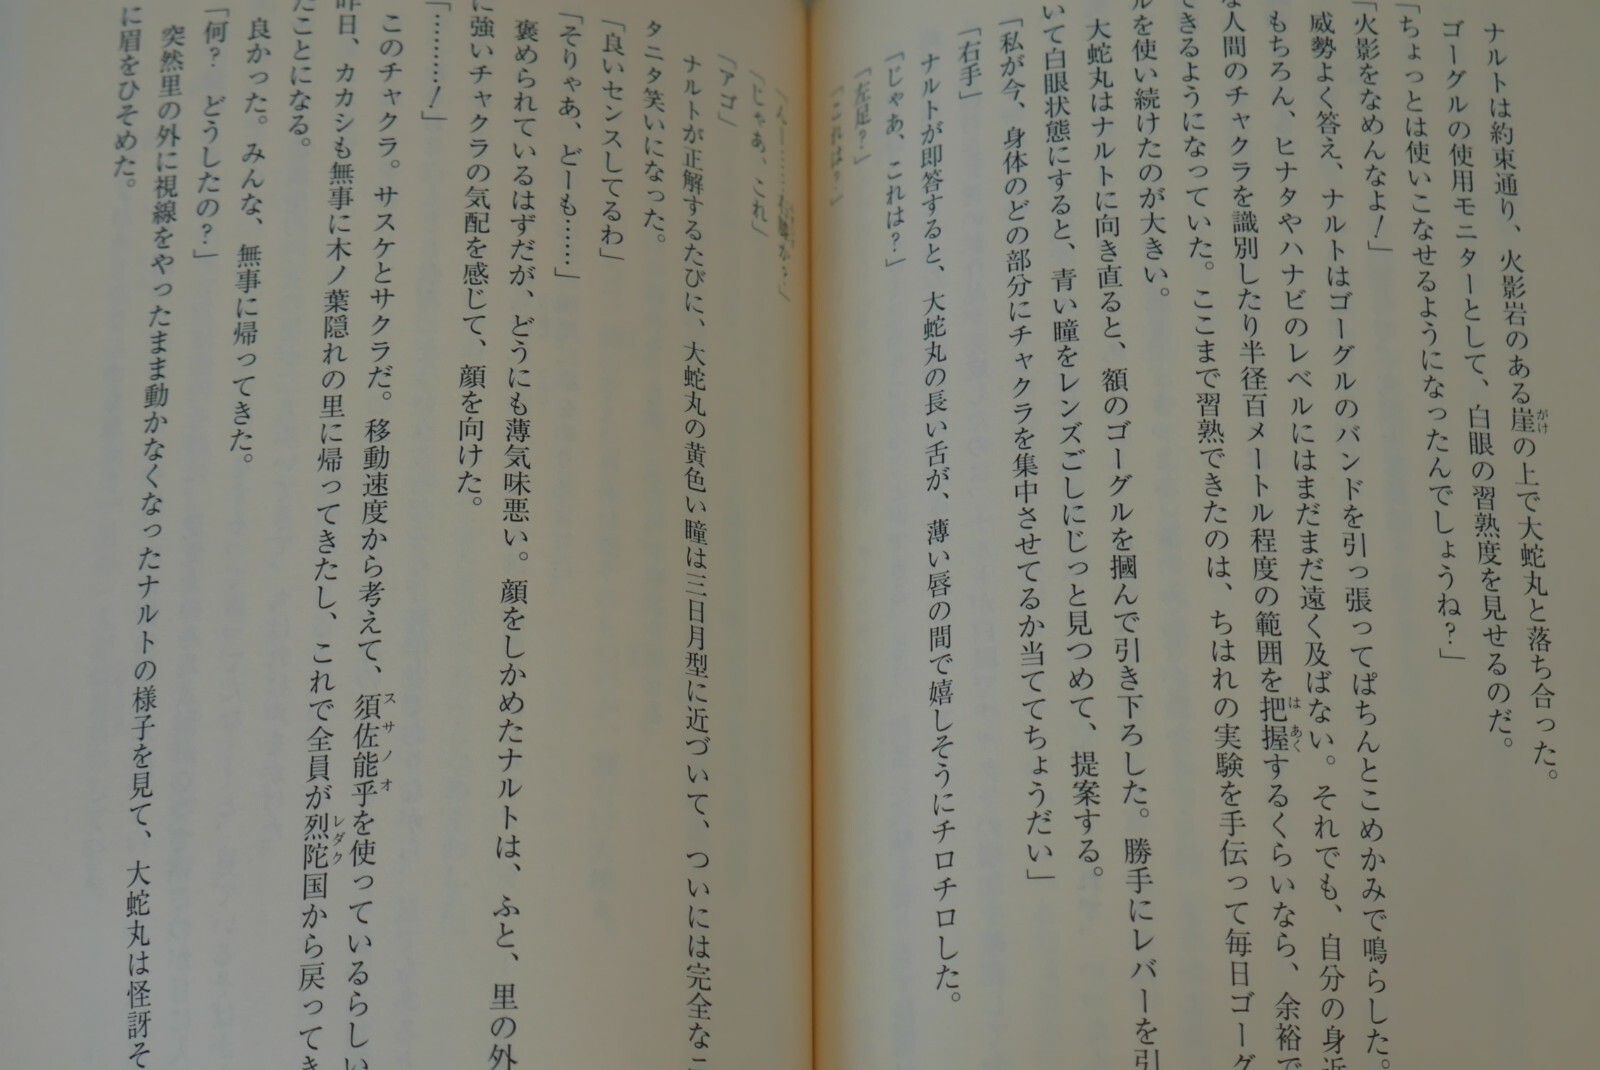 ナルトは約束通り、火影岩のある崖の上で大蛇丸と落ち合った。
ゴーグルの使用モニターとして、白眼の習熟度を見せるのだ。
「ちょっとは使いこなせるようになったんでしょうね？」
「火影をなめんなよ！」
威勢よく答え、ナルトはゴーグルのバンドを引っ張ってぱちんとこめかみで鳴らした。
もちろん、ヒナタやハナビのレベルにはまだまだ遠く及ばない。それでも、自分の身近
な人間のチャクラを識別したり半径百メートル程度の範囲を把握するくらいなら、余裕で
できるようになっていた。ここまで習熟できたのは、ちはれの実験を手伝って毎日ゴーグ
ルを使い続けたのが大きい。
大蛇丸はナルトに向き直ると、額のゴーグルを摑んで引き下ろした。勝手にレバーを引
いて白眼状態にすると、青い瞳をレンズごしにじっと見つめて、提案する。
「私が今、身体のどの部分にチャクラを集中させてるか当ててちょうだい」
「右手」
ナルトが即答すると、大蛇丸の長い舌が、薄い唇の間で嬉しそうにチロチロした。
「じゃあ、これは？」
「左足？」
「これは？」
「じゃあ、これ」
「アゴ」
ナルトが正解するたびに、大蛇丸の黄色い瞳は三日月型に近づいて、ついには完全なニ
タニタ笑いになった。
「良いセンスしてるわ」
「そりゃあ、どーも……」
褒められているはずだが、どうにも薄気味悪い。顔をしかめたナルトは、ふと、里の外
に強いチャクラの気配を感じて、顔を向けた。
「………！」
このチャクラ。サスケとサクラだ。移動速度から考えて、須佐能乎を使っているらしい
昨日、カカシも無事に木ノ葉隠れの里に帰ってきたし、これで全員が烈陀国から戻ってき
たことになる。
良かった。みんな、無事に帰ってきた。
「何？　どうしたの？」
突然里の外に視線をやったまま動かなくなったナルトの様子を見て、大蛇丸は怪訝そ
に眉をひそめた。